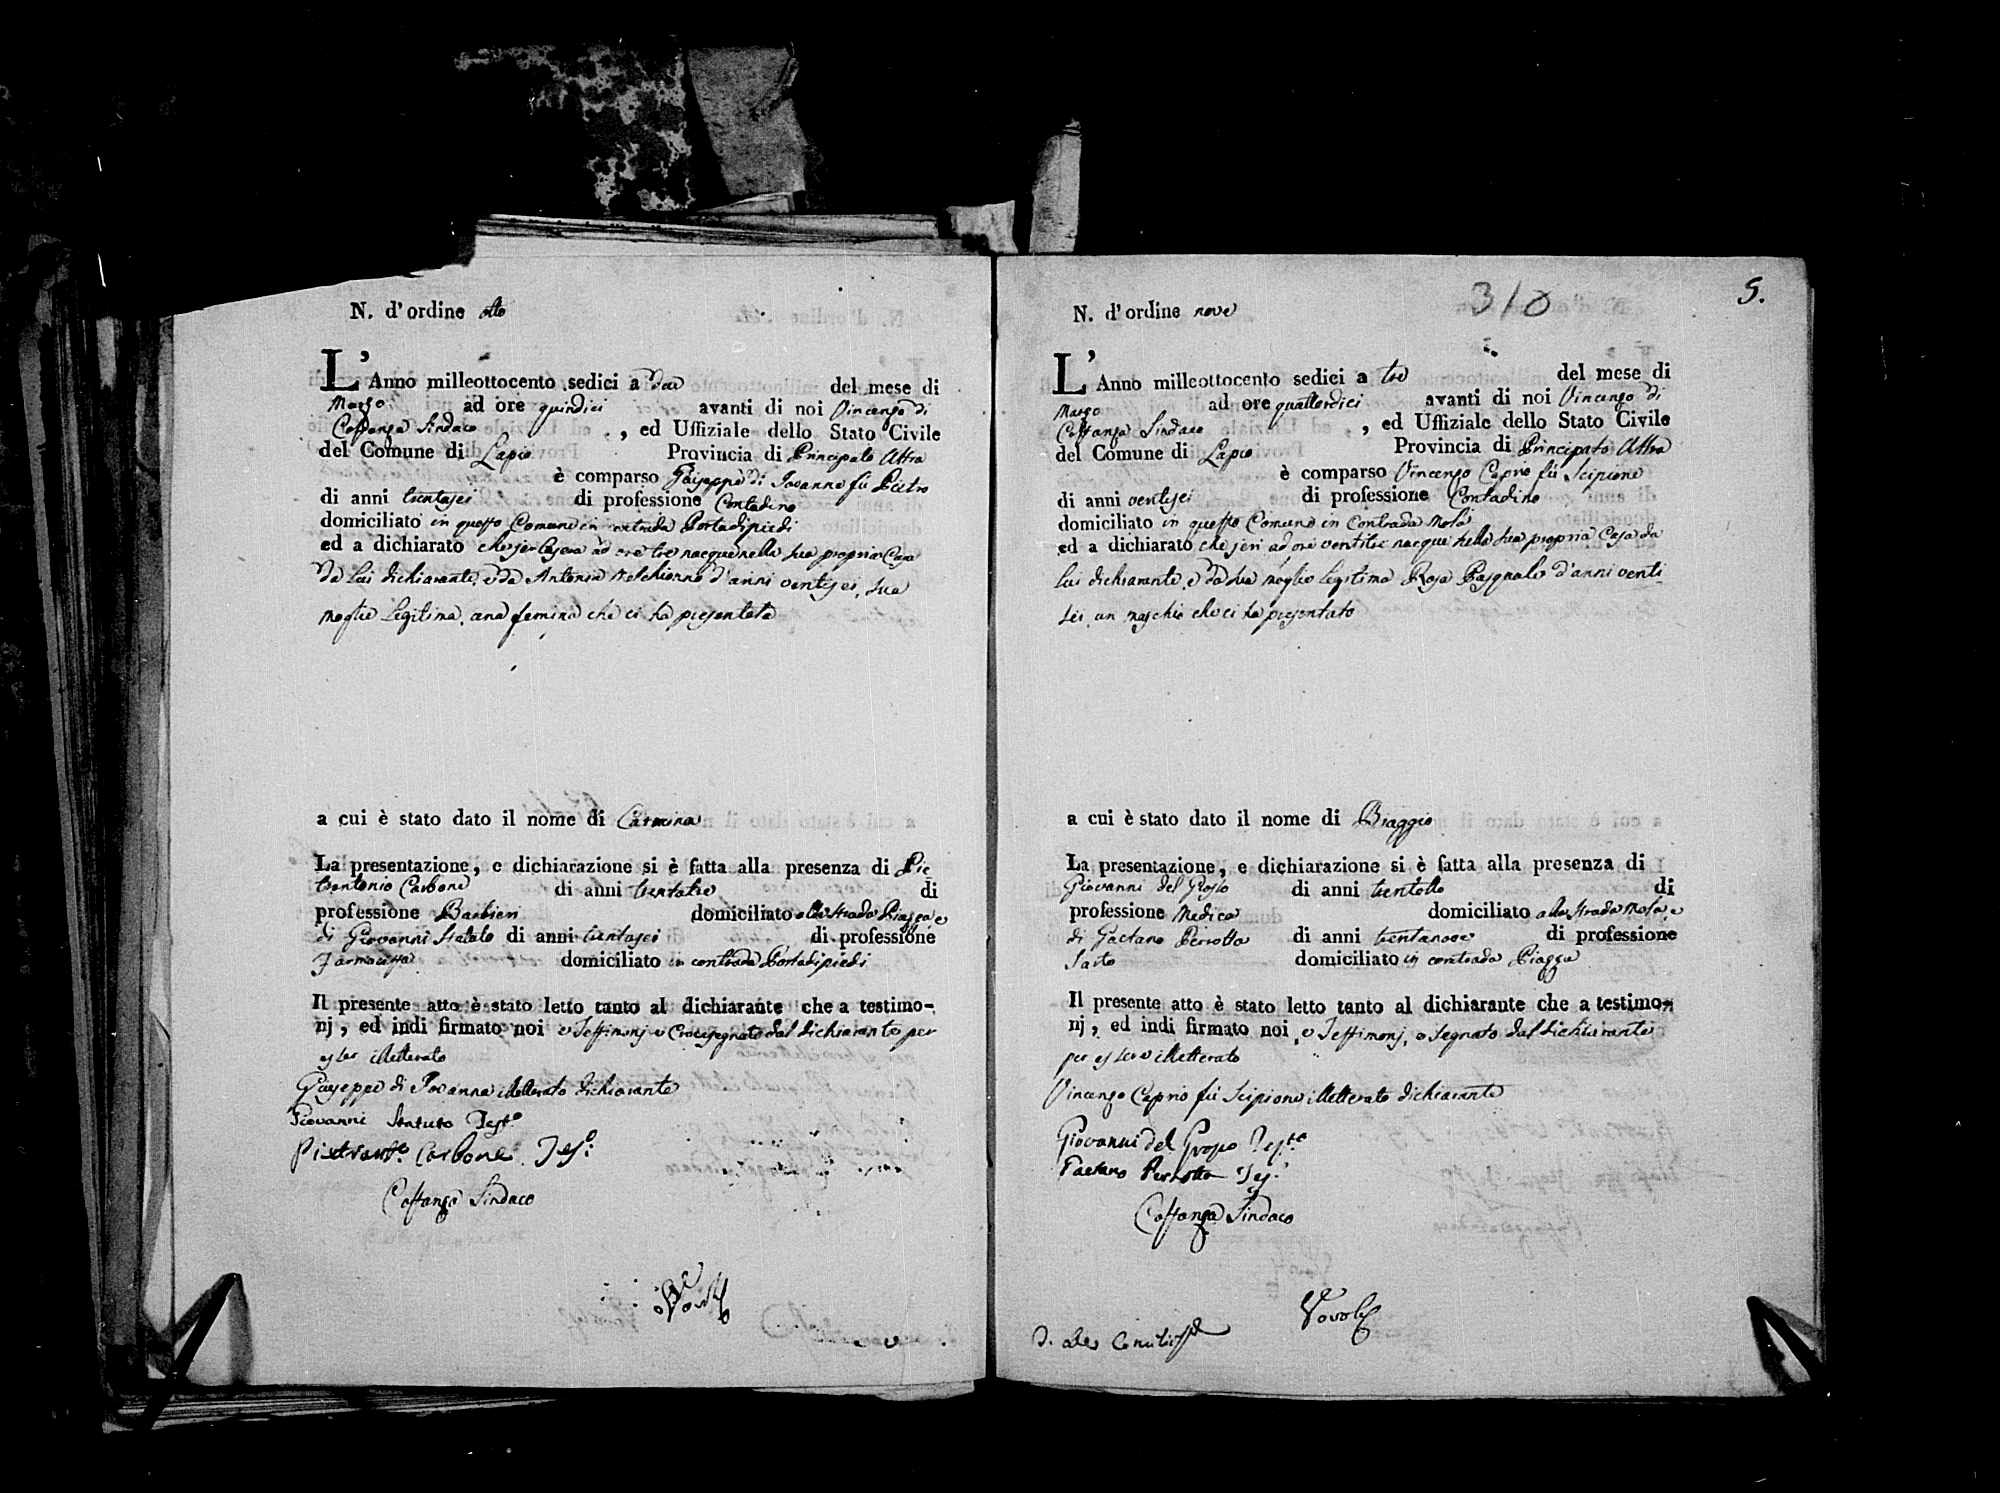 N. d'ordine otto
L'Anno milleottocento sedici a due del mese di
Marzo ad ore quindici avanti di noi Vincenzo di
Costanza Sindaco , ed Uffiziale dello Stato Civile
del Comune di Lapio Provincia di Principato Ultra
è comparso Giuseppe di Iovanna fù Pietro
di anni trentasei di professione Contadino
domiciliato in questo Comune in contrada Portadipiedi
ed a dichiarato che jer la sera ad ore tre nacque nella sua propria Casa
da lui dichiarante, e da Antonia Melchionno d'anni ventisei, sua
moglie legitima, una femina che ci ha presentata
a cui è stato dato il nome di Carmina
La presentazione, e dichiarazione si è fatta alla presenza di Pie
trantonio Carbone di anni trentatre di
professione Barbieri domiciliato alla strada Piazza e
di Giovanni Statuto di anni trentasei di professione
Farmacista domiciliato in contrada Portadipiedi
Il presente atto è stato letto tanto al dichiarante che a testimo-
nj, ed indi firmato noi e Testimonj e Crocesegnato dal dichiarante per
esser illetterato
Giuseppe di Iovanna illetterato dichiarante
Giovanni Statuto Test.º
Pietrant.º Carbone Tes.º
Costanza Sindaco
310
5.
N. d'ordine nove
L'Anno milleottocento sedici a tre del mese di
Marzo ad ore quattordici avanti di noi Vincenzo di
Costanza Sindaco , ed Uffiziale dello Stato Civile
del Comune di Lapio Provincia di Principato Ultra
è comparso Vincenzo Caprio fù Scipione
di anni ventisei di professione Contadino
domiciliato in questo Comune in Contrada Mola
ed a dichiarato che jeri ad ore ventitre nacque nella sua propria Casa da
lui dichiarante, e da sua moglie legitima Rosa Pasquale d'anni venti
sei, un maschio che ci ha presentato
a cui è stato dato il nome di Biaggio
La presentazione, e dichiarazione si è fatta alla presenza di
Giovanni del Grosso di anni trentotto di
professione Medico domiciliato alla strada Mola, e
di Gaetano Perrotta di anni trentanove di professione
Sarto domiciliato in contrada Piazza
Il presente atto è stato letto tanto al dichiarante che a testimo-
nj, ed indi firmato noi, e Testimonj, e segnato dal dichiarante
per essere illetterato
Vincenzo Caprio fù Scipione illetterato dichiarante
Giovanni del Grosso Test.º
Gaetano Perrotta Tes.º
Costanza Sindaco